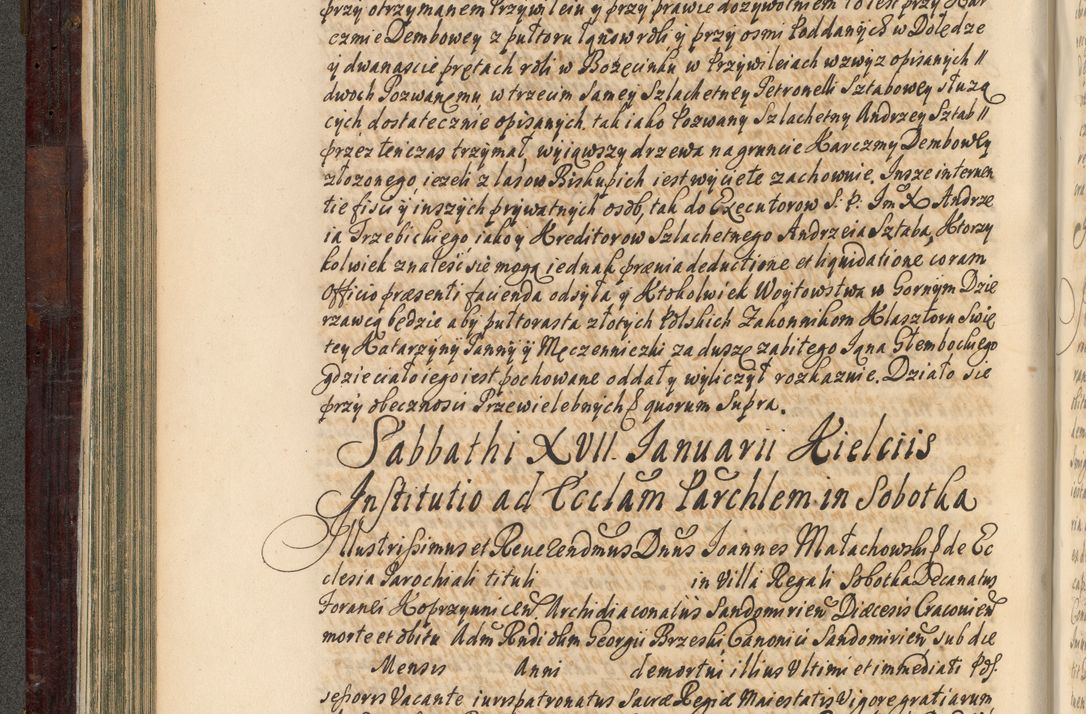 przy otrzymanem Przywileiu y przy prawie dozywotniem to iest przy Kar
czmie Dembowey z pułtoru łanow roli y przy osmi Poddanych w Dolędze
y dwanascie prętach roli w Bozęcinku w Przywileiach wzwyz opisanych
dwoch Pozwanemu, w trzecim Samey Szlachetney Petronelli Sztabowey słuzą
cych dostatecznie opisanych. tak iako Pozwany Szlachetny Andrzey Sztab
przez tenczas trzymał, wyiąwszy drzewa na gruncie Karczmy Dembowey
złozonego, iezeli z lasow Biskupich iest wycięte zachownie. Insze interven
tie fisci y inszych prywatnych osob, tak do Executorow S. P. Im X Andrze
ia Trzebickiego iako y Kreditorow Szlachetnego Andrzeia Sztaba, Ktorzy
kolwiek znalesć się mogą iednak prævia deductione et liquidatione coram
Officio præsenti facienda odsyła y Ktokolwiek Woytowstwa w Gornym Dzie
rzawcą będzie aby pułtorasta złotych Polskich Zakonnikom Klasztoru Swię
tey Katarzyny Panny y Męczenniczki za duszę zabitego Jana Głembockiego
gdzie ciało iego iest pochowane oddał y wyliczył rozkazuie. Działo się
przy obecnosci Przewielebnych & quorum supra.
Sabbathi XVII. Januarii Kielciis
Institutio ad Ecclam Parchlem in Sobotka
Illustrissimus et Reverendmus Dnus Joannes Małachowski & de Ec
clesia Parochiali tituli in Villa Regali Sobotka Decanatus
foranei Koprzyunicen. Archidiaconatus Sandomirien Diœcesis Cracovien
morte et obitu Adm Rndi olim Georgii Brzeski Canonici Sandomirien sub die
Mensis Anni demortui illius Ultimi et immediati Pos
sessoris Vacante iurispatronatus Sacræ Regiæ Maiestatis Vigore gratiarum